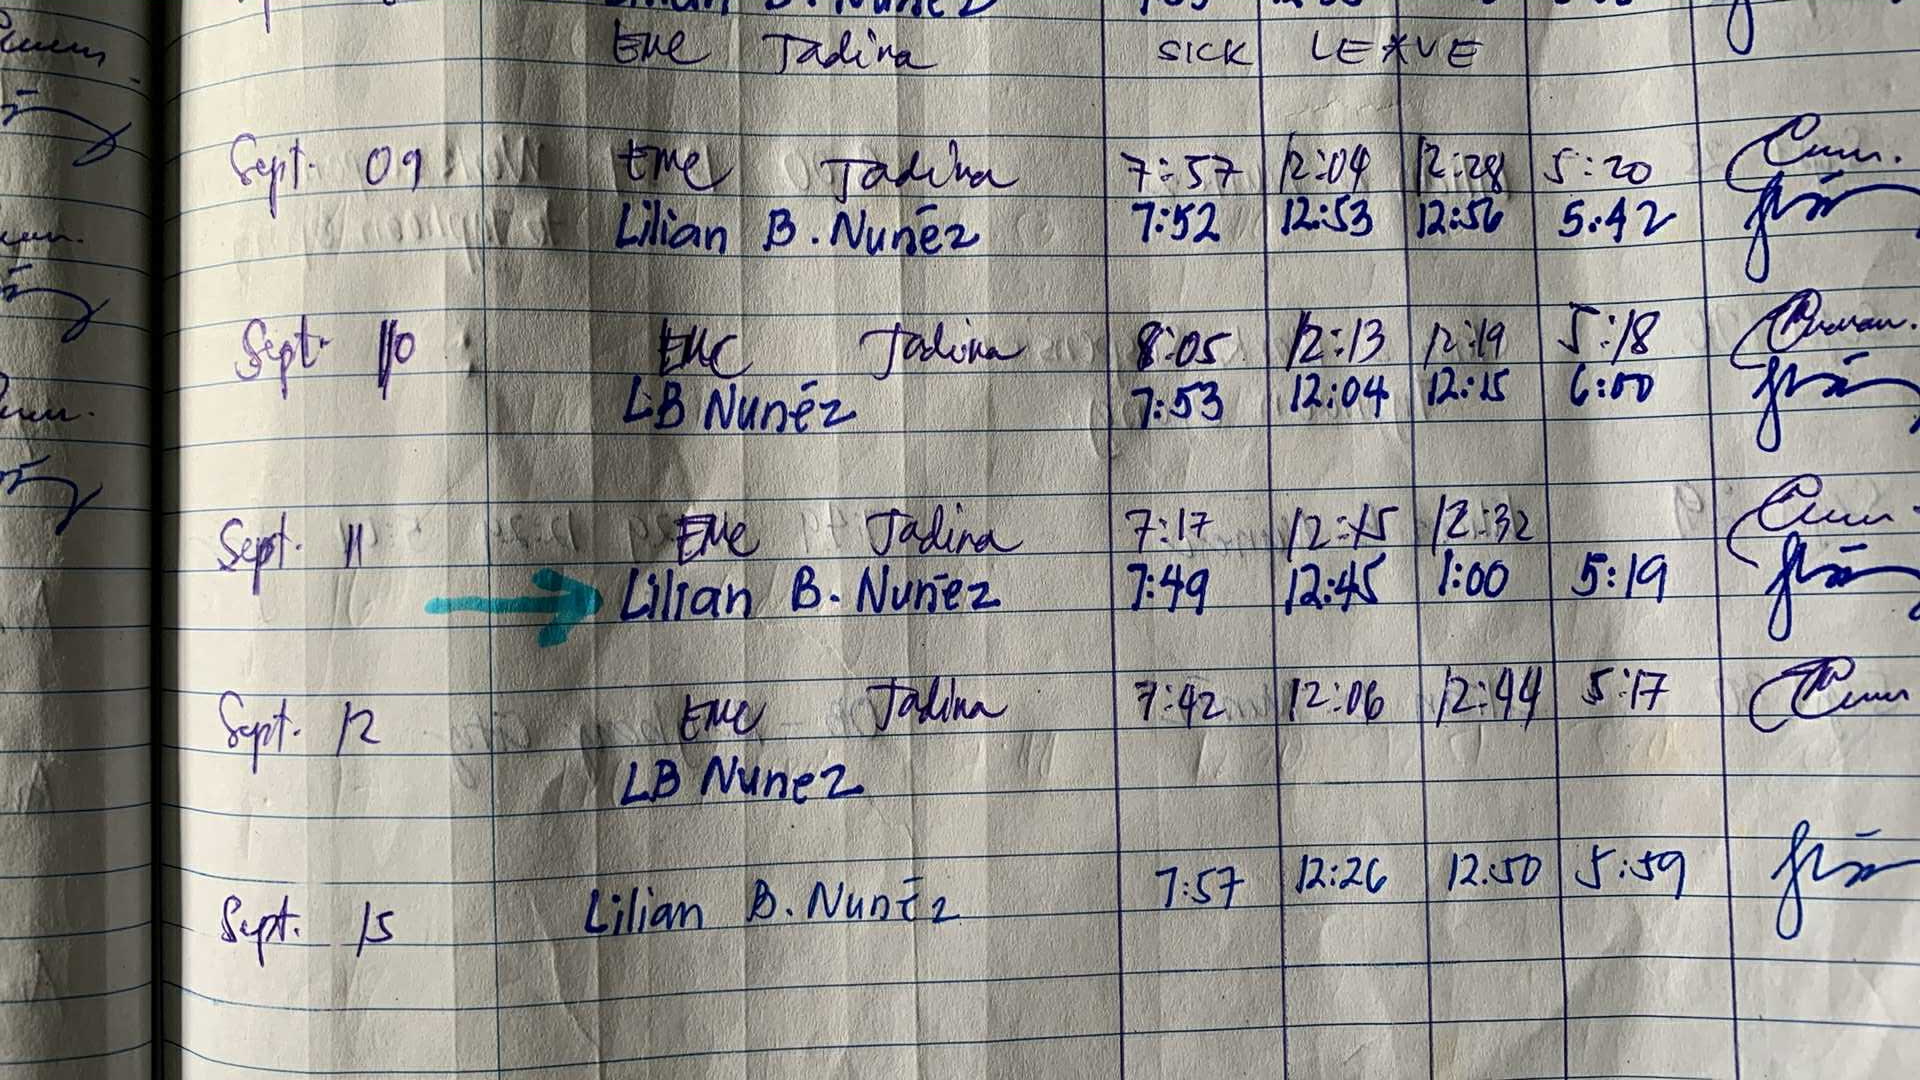 EMC Tadina SICK LEAVE
Sept. 09 EMC Tadina 7:57 12:04 12:28 5:20
Lilian B. Nuñez 7:52 12:53 12:56 5:42
Sept. 10 EMC Tadina 8:05 12:13 12:19 5:18
LB Nuñez 7:53 12:04 12:15 6:00
Sept. 11 EMC Tadina 7:17 12:15 12:32
Lilian B. Nuñez 7:49 12:45 1:00 5:19
Sept. 12 EMC Tadina 7:42 12:06 12:44 5:17
LB Nunez
Sept. 15 Lilian B. Nuñez 7:57 12:26 12:50 5:59